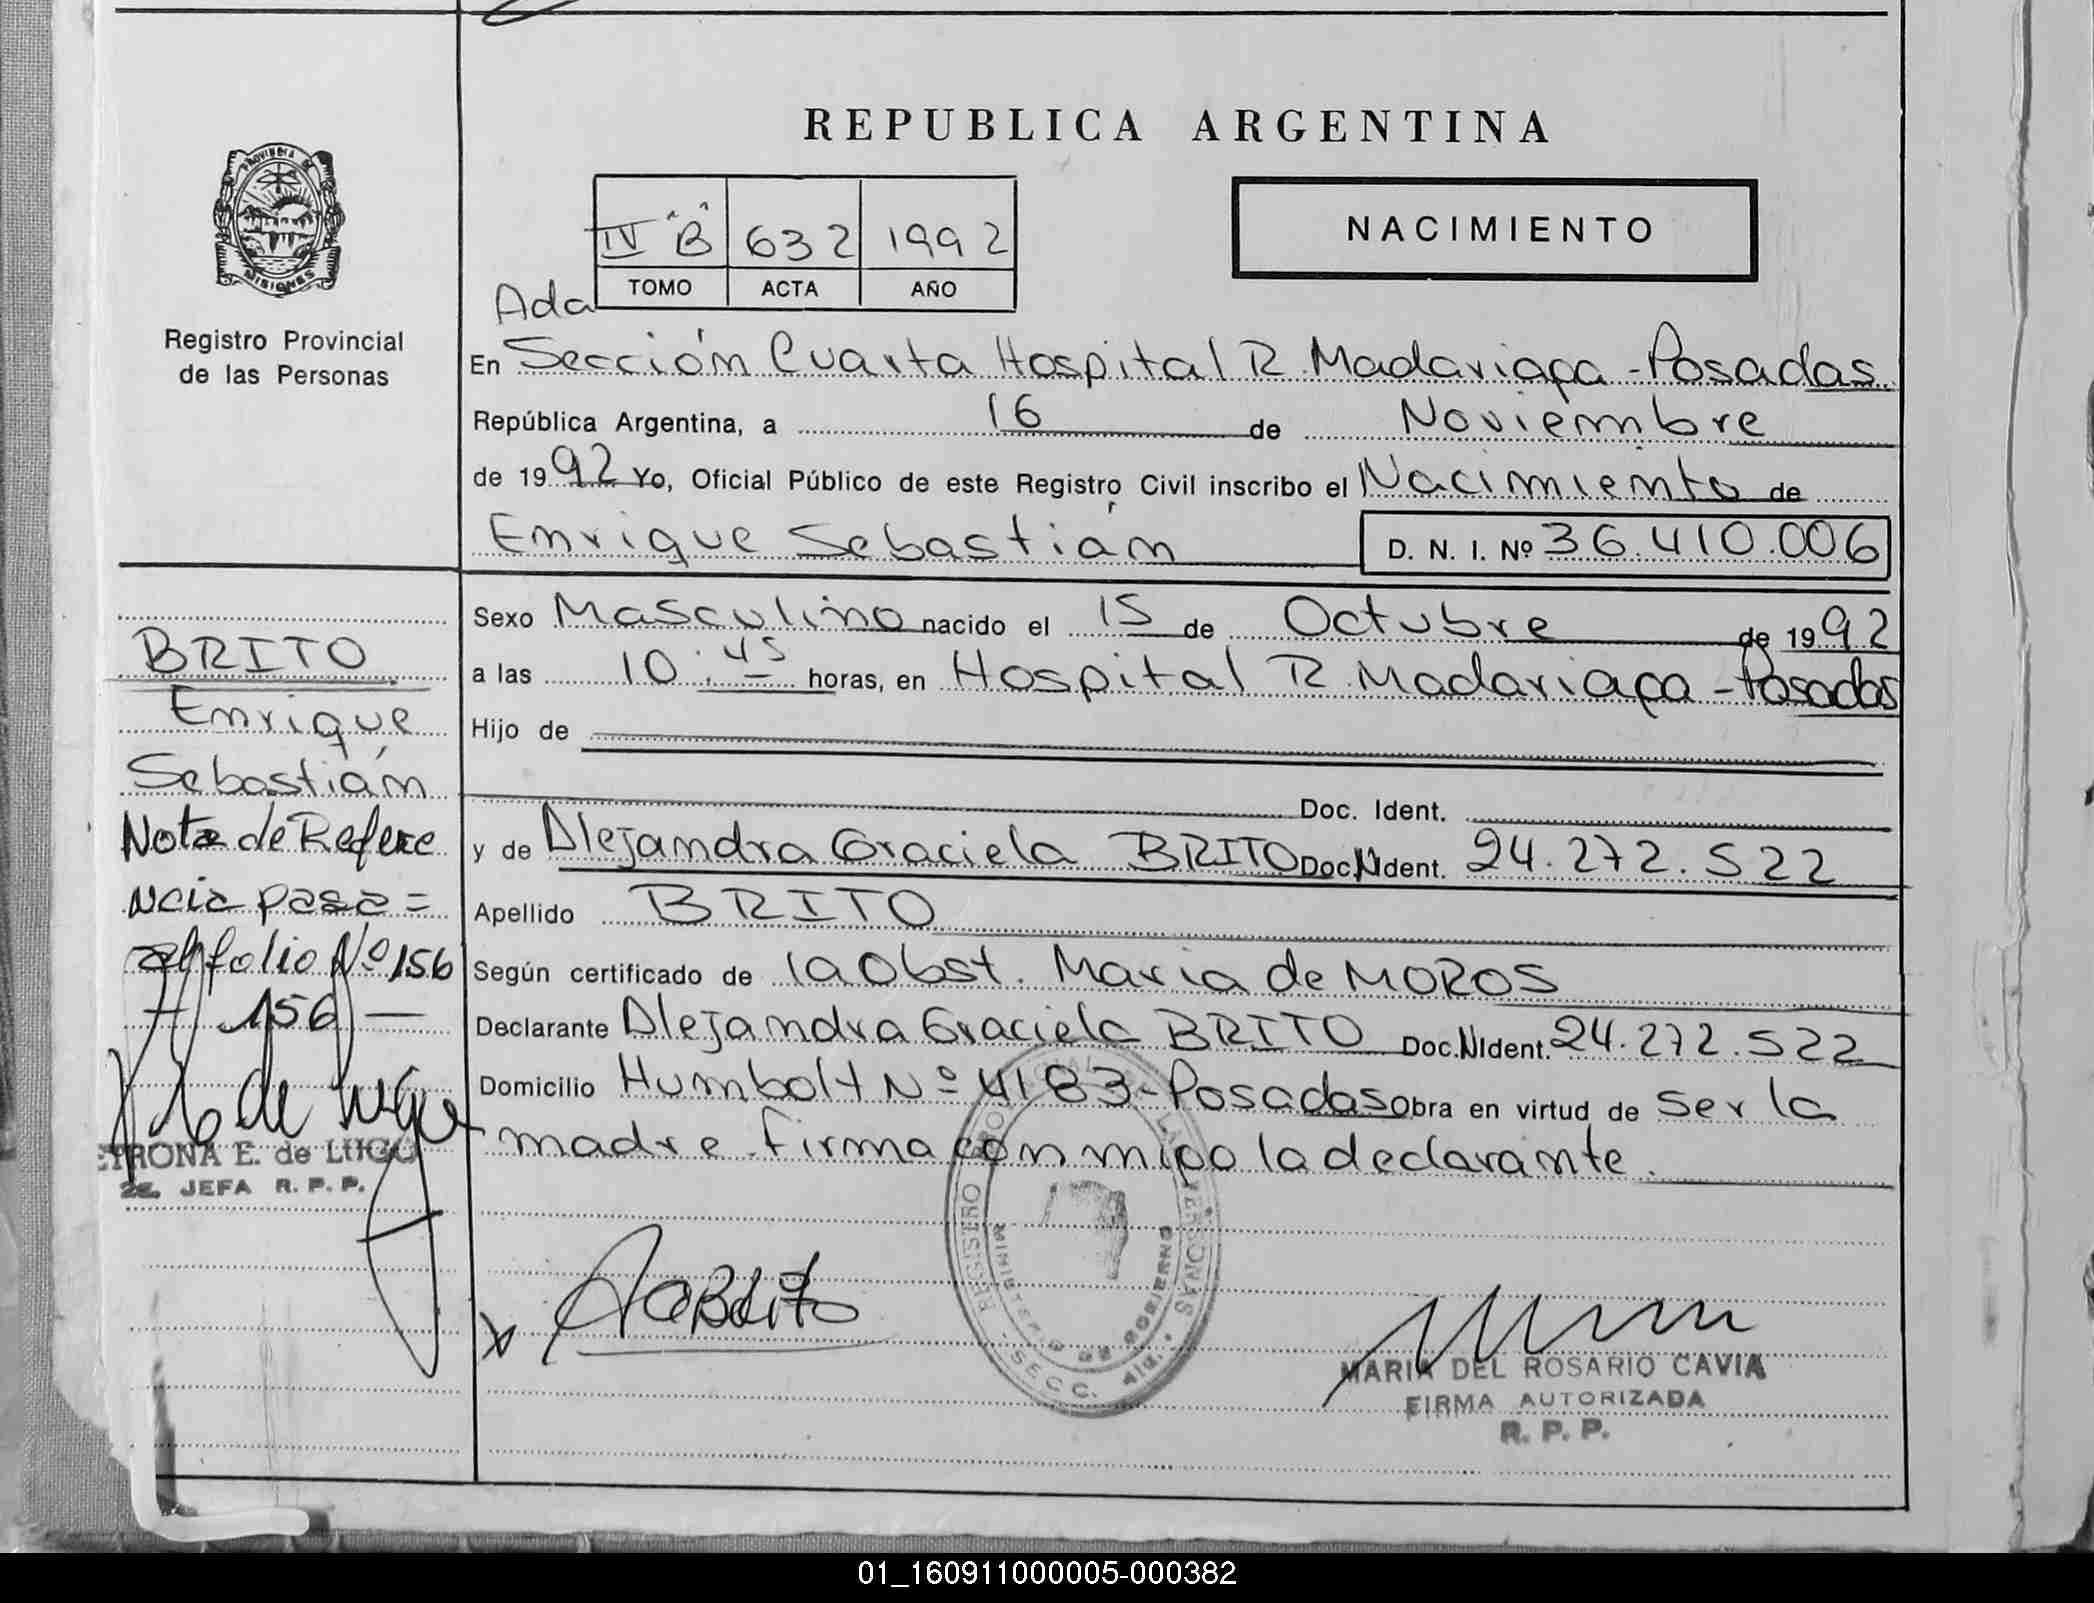 REPUBLICA ARGENTINA
PROVINCIA DE
MISIONES
Registro Provincial
de las Personas
IV "B" 632 1992
TOMO ACTA AÑO
NACIMIENTO
Ada
En Sección Cuarta Hospital R. Madariaga - Posadas
República Argentina, a 16 de Noviembre
de 1992 Yo, Oficial Público de este Registro Civil inscribo el Nacimiento de
Enrique Sebastián D. N. I. Nº 36.410.006
Sexo Masculino nacido el 15 de Octubre de 1992
a las 10:45 horas, en Hospital R. Madariaga - Posadas
Hijo de
Doc. Ident.
y de Alejandra Graciela BRITO Doc.N Ident. 24.272.522
Apellido BRITO
Según certificado de la Obst. Maria de MOROS
Declarante Alejandra Graciela BRITO Doc.N Ident. 24.272.522
Domicilio Humbolt Nº 4183 - Posadas Obra en virtud de ser la
madre. firma conmigo la declarante.
BRITO
Enrique
Sebastián
Nota de Refere
ncia pasa =
al folio Nº 156
- 156 -
E. de LUGO
JEFA R. P. P.
REGISTRO
PERSONAS
MINISTERIO DE GOBIERNO
SECC. 4ta.
x ABrito
MARIA DEL ROSARIO CAVIA
FIRMA AUTORIZADA
R. P. P.
01_160911000005-000382